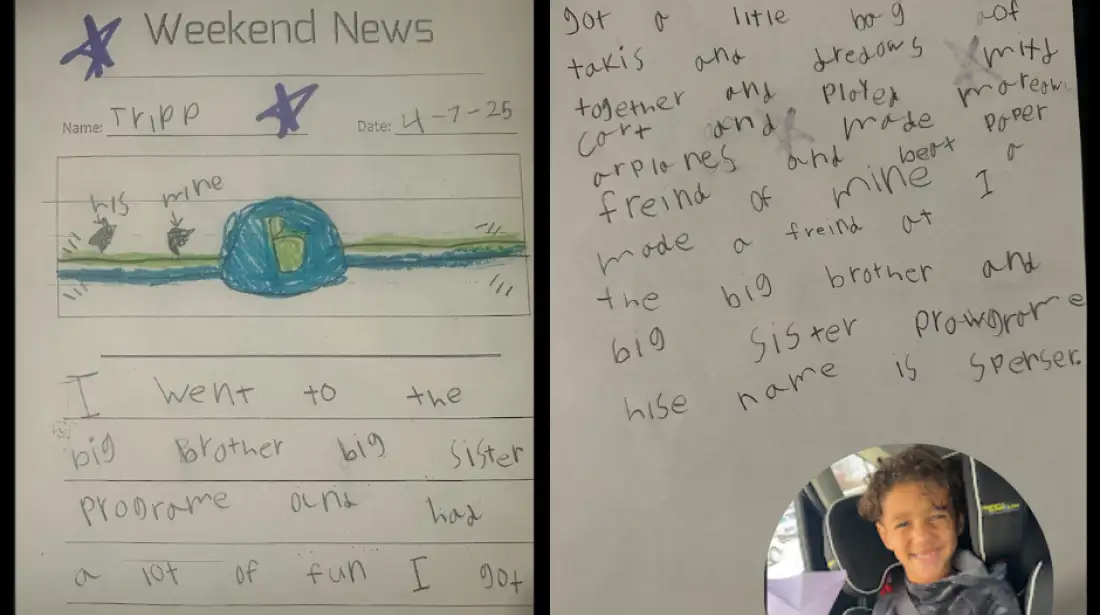 Weekend News
Name: Tripp
Date: 4-7-25
his mine
I went to the
big Brother big sister
programe and had
a lot of fun I got
got a litle bag of
takis and dredows mitd
together and ployed mareow
cart and made paper
arplanes and beat a
freind of mine I
made a freind at
the big brother and
big sister prowgrame
hise name is sperser.